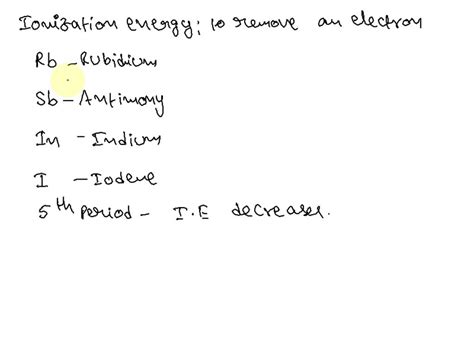 Ionization energy; to remove an electron
Rb - Rubidium
Sb - Antimony
In - Indium
I - Iodene
5th Period - I.E decreases.